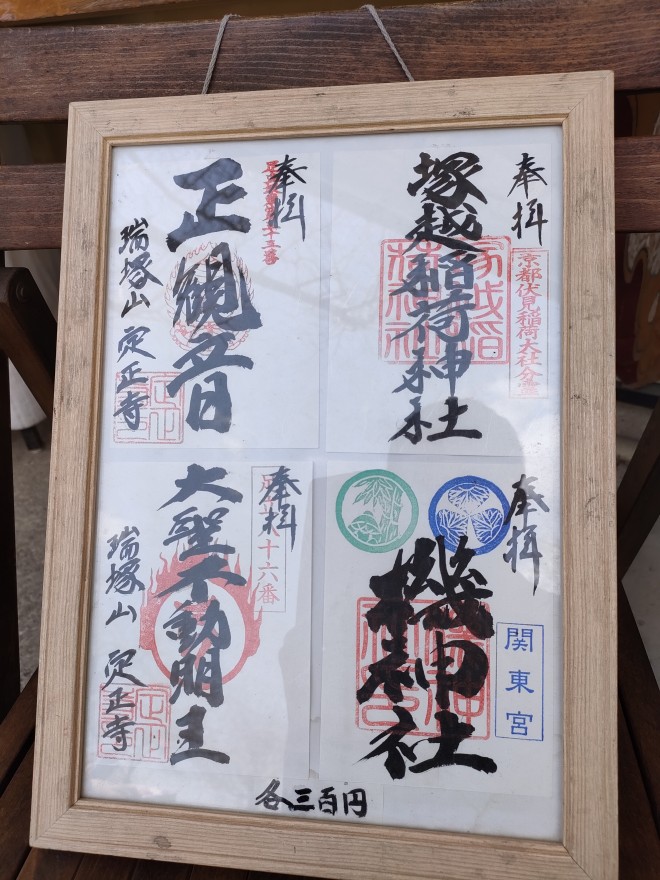 奉拝
京都伏見稲荷大社分霊
塚越稲荷神社
奉拝
正観音
瑞塚山 定正寺
奉拝
関東宮
機神社
奉拝
十六番
大聖不動明王
瑞塚山 定正寺
各三百円